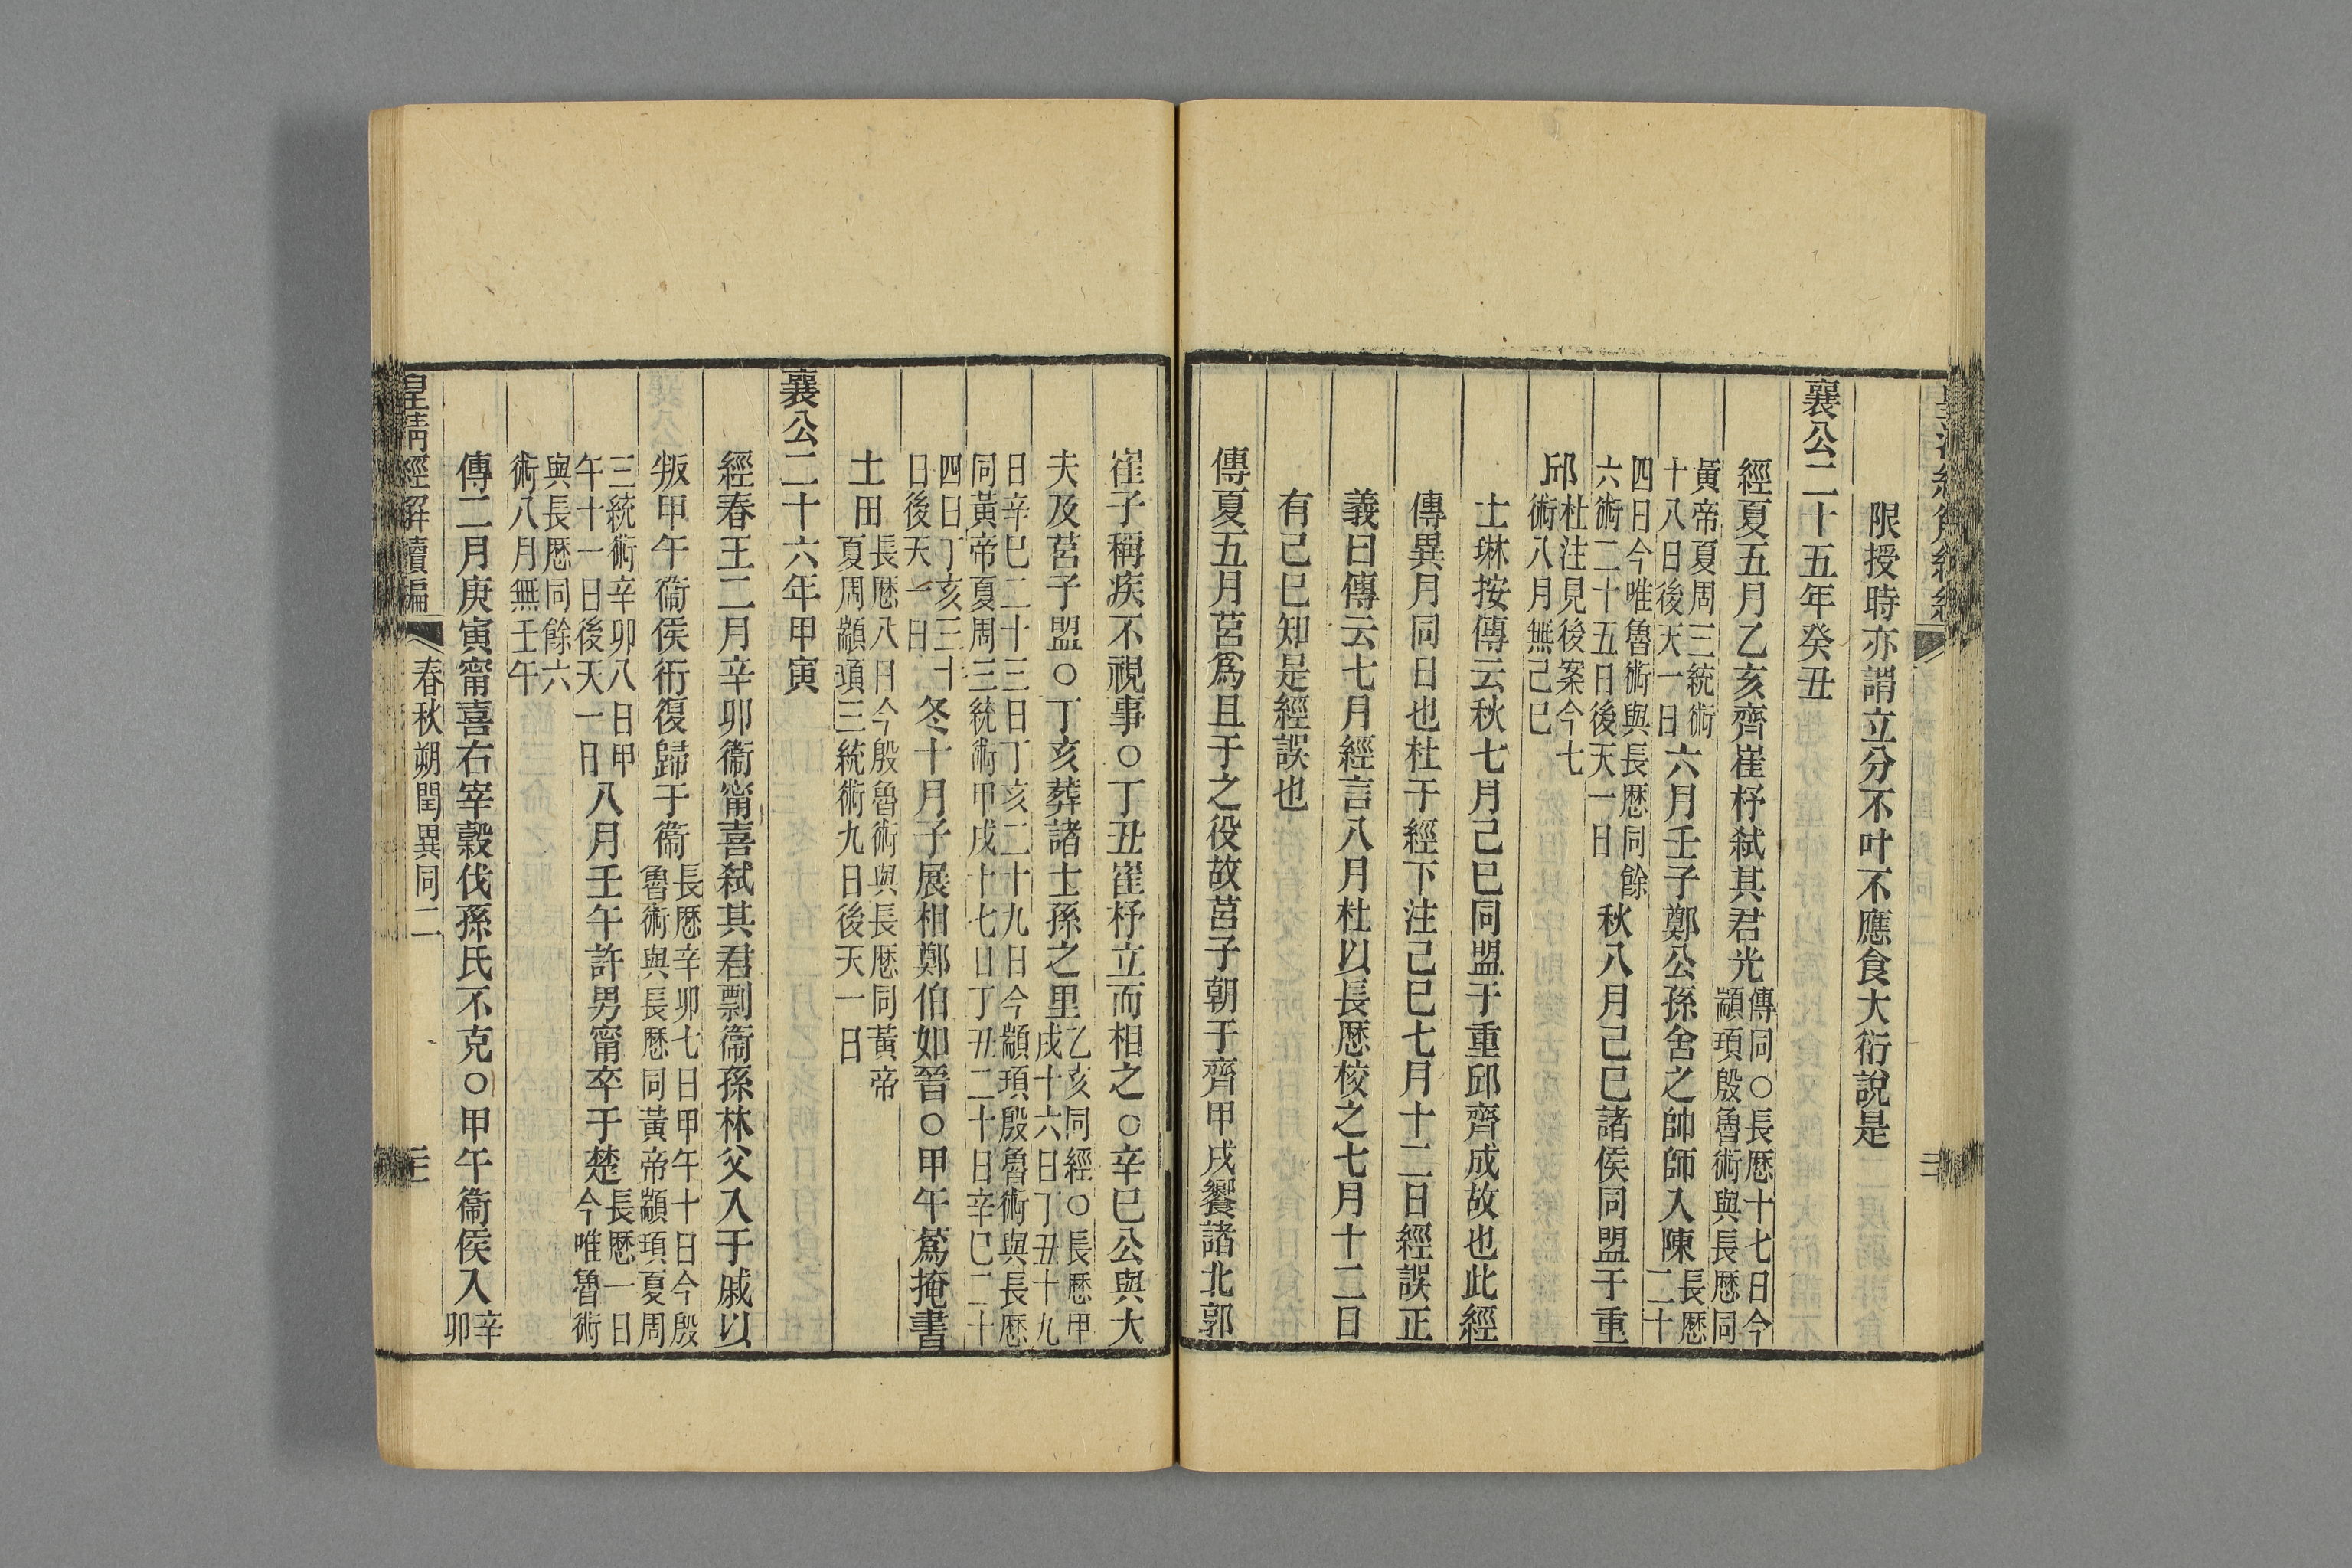 限授時亦謂立分不叶不應食大衍說是
襄公二十五年癸丑
經夏五月乙亥齊崔杼弑其君光傳同○長厯十七日今
顓頊殷魯術與長厯同
黃帝夏周三統術
十八日後天一日六月壬子鄭公孫舍之帥師入陳長厯
二十
四日今唯魯術與長厯同餘
六術二十五日後天一日秋八月己巳諸侯同盟于重
邱杜注見後案今七
術八月無己巳
士琳按傳云秋七月己巳同盟于重邱齊成故也此經
傳異月同日也杜于經下注己巳七月十二日經誤正
義曰傳云七月經言八月杜以長厯校之七月十二日
有己巳知是經誤也
傳夏五月莒爲且于之役故莒子朝于齊甲戌饗諸北郭
崔子稱疾不視事○丁丑崔杼立而相之○辛巳公與大
夫及莒子盟○丁亥葬諸士孫之里乙亥同經○長厯甲
戌十六日丁丑十九
日辛巳二十三日丁亥二十九日今顓頊殷魯術與長厯
同黃帝夏周三統術甲戌十七日丁丑二十日辛巳二十
四日丁亥三十
日後天一日冬十月子展相鄭伯如晉○甲午蒍掩書
土田長厯八日今殷魯術與長厯同黃帝
夏周顓頊三統術九日後天一日
襄公二十六年甲寅
經春王二月辛卯衞甯喜弑其君剽衞孫林父入于戚以
叛甲午衞侯衎復歸于衞長厯辛卯七日甲午十日今殷
魯術與長厯同黃帝顓頊夏周
三統術辛卯八日甲
午十一日後天一日八月壬午許男甯卒于楚長厯一日
今唯魯術
與長厯同餘六
術八月無壬午
傳二月庚寅甯喜右宰穀伐孫氏不克○甲午衞侯入辛
卯
皇清經解續編
春秋朔閏異同二